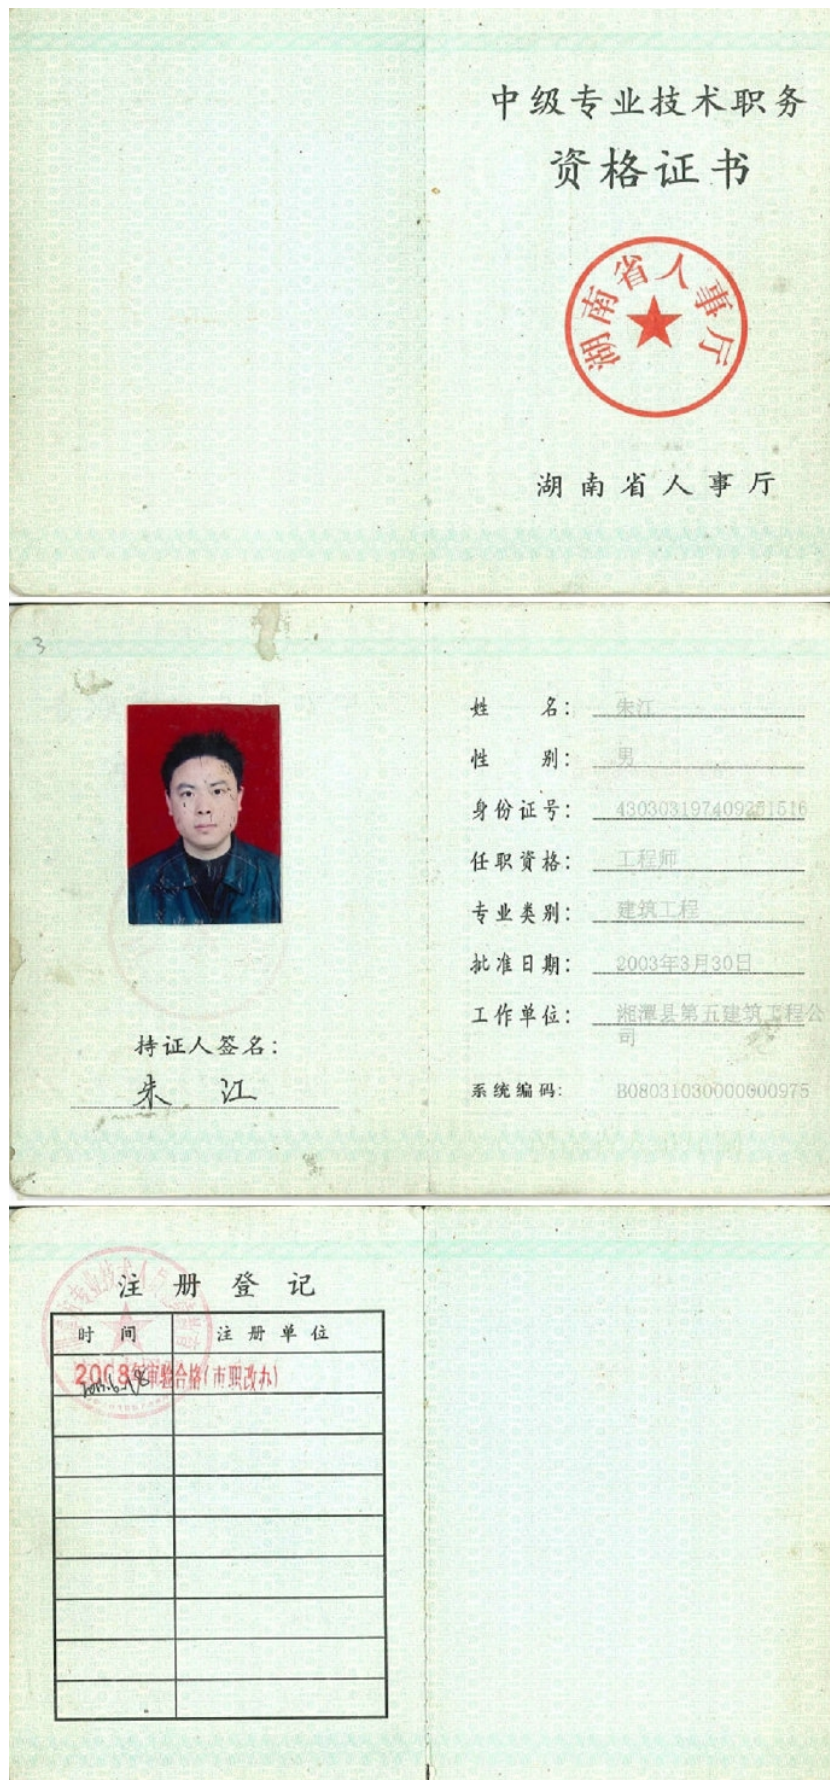 中级专业技术职务
资格证书
湖南省人事厅
湖南省人事厅
3
姓 名： 朱江
性 别： 男
身份证号： 430303197409251516
任职资格： 工程师
专业类别： 建筑工程
批准日期： 2003年3月30日
工作单位： 湘潭县第五建筑工程公
司
系统编码： B08031030000000975
持证人签名：
朱 江
注册登记
时 间 注册单位
2008年审验合格(市职改办)